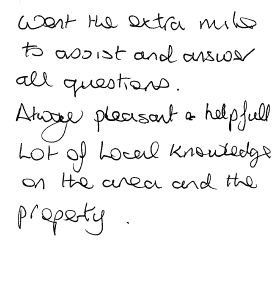 Went the extra mile
to assist and answer
all questions.
Always pleasant & helpfull
Lot of Local Knowledge
on the area and the
property.